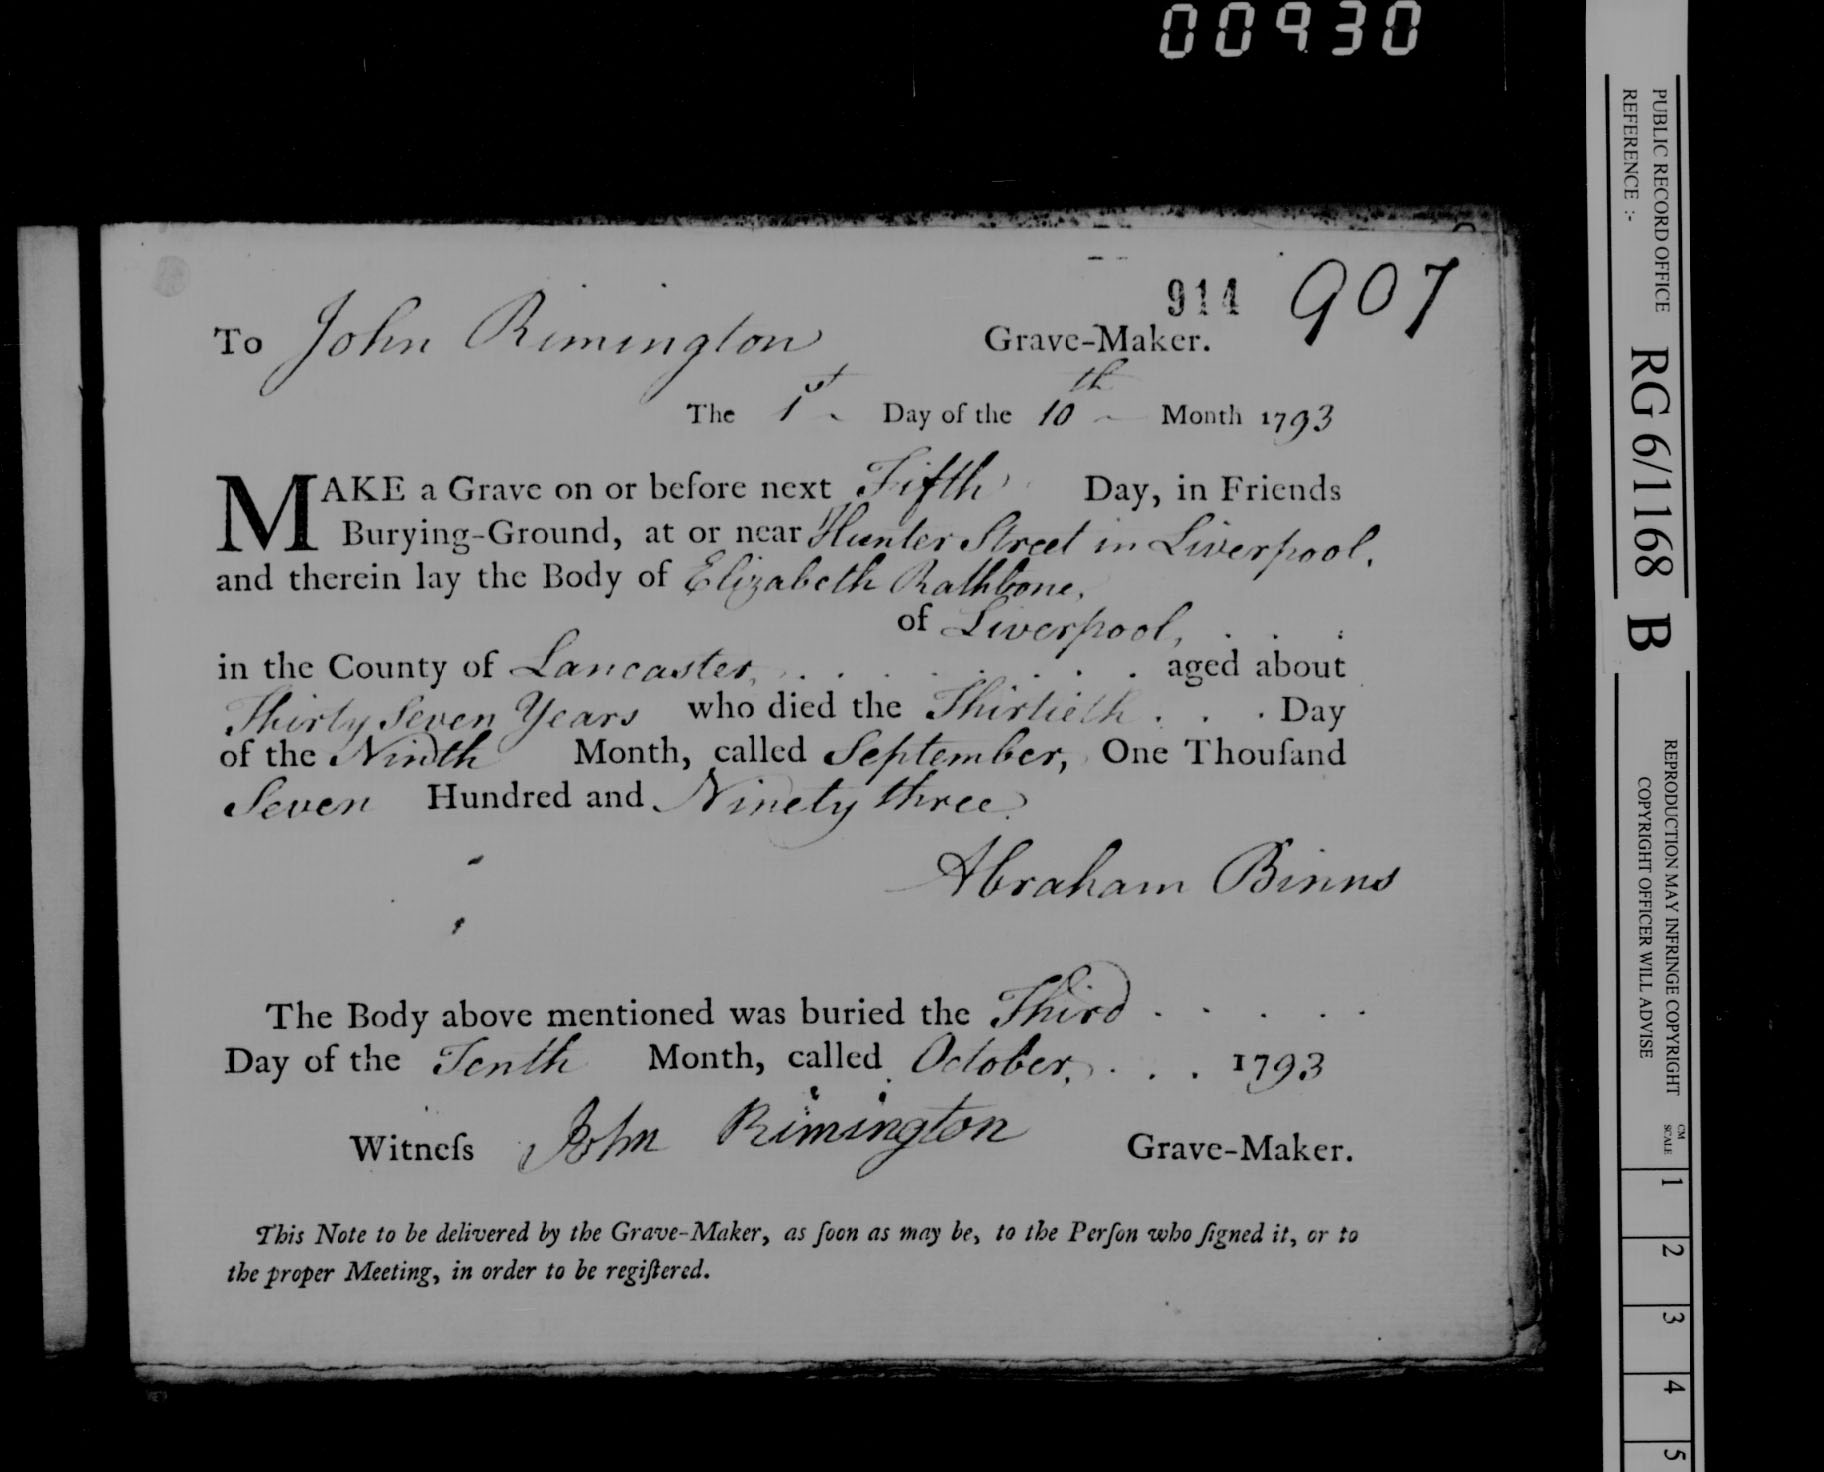 00930
914 907
To John Rimington Grave-Maker.
The 1st Day of the 10th Month 1793
MAKE a Grave on or before next Fifth Day, in Friends
Burying-Ground, at or near Hunter Street in Liverpool,
and therein lay the Body of Elizabeth Rathbone,
of Liverpool, . . .
in the County of Lancaster, . . . . . . . . aged about
Thirty Seven Years who died the Thirtieth . . . Day
of the Ninth Month, called September, One Thouſand
Seven Hundred and Ninety three
Abraham Binns
The Body above mentioned was buried the Third . . . . .
Day of the Tenth Month, called October, . . . 1793
Witneſs John Rimington Grave-Maker.
This Note to be delivered by the Grave-Maker, as ſoon as may be, to the Perſon who ſigned it, or to
the proper Meeting, in order to be regiſtered.
PUBLIC RECORD OFFICE
REFERENCE :-
RG 6/1168 B
REPRODUCTION MAY INFRINGE COPYRIGHT
COPYRIGHT OFFICER WILL ADVISE
CM
SCALE
1
2
3
4
5